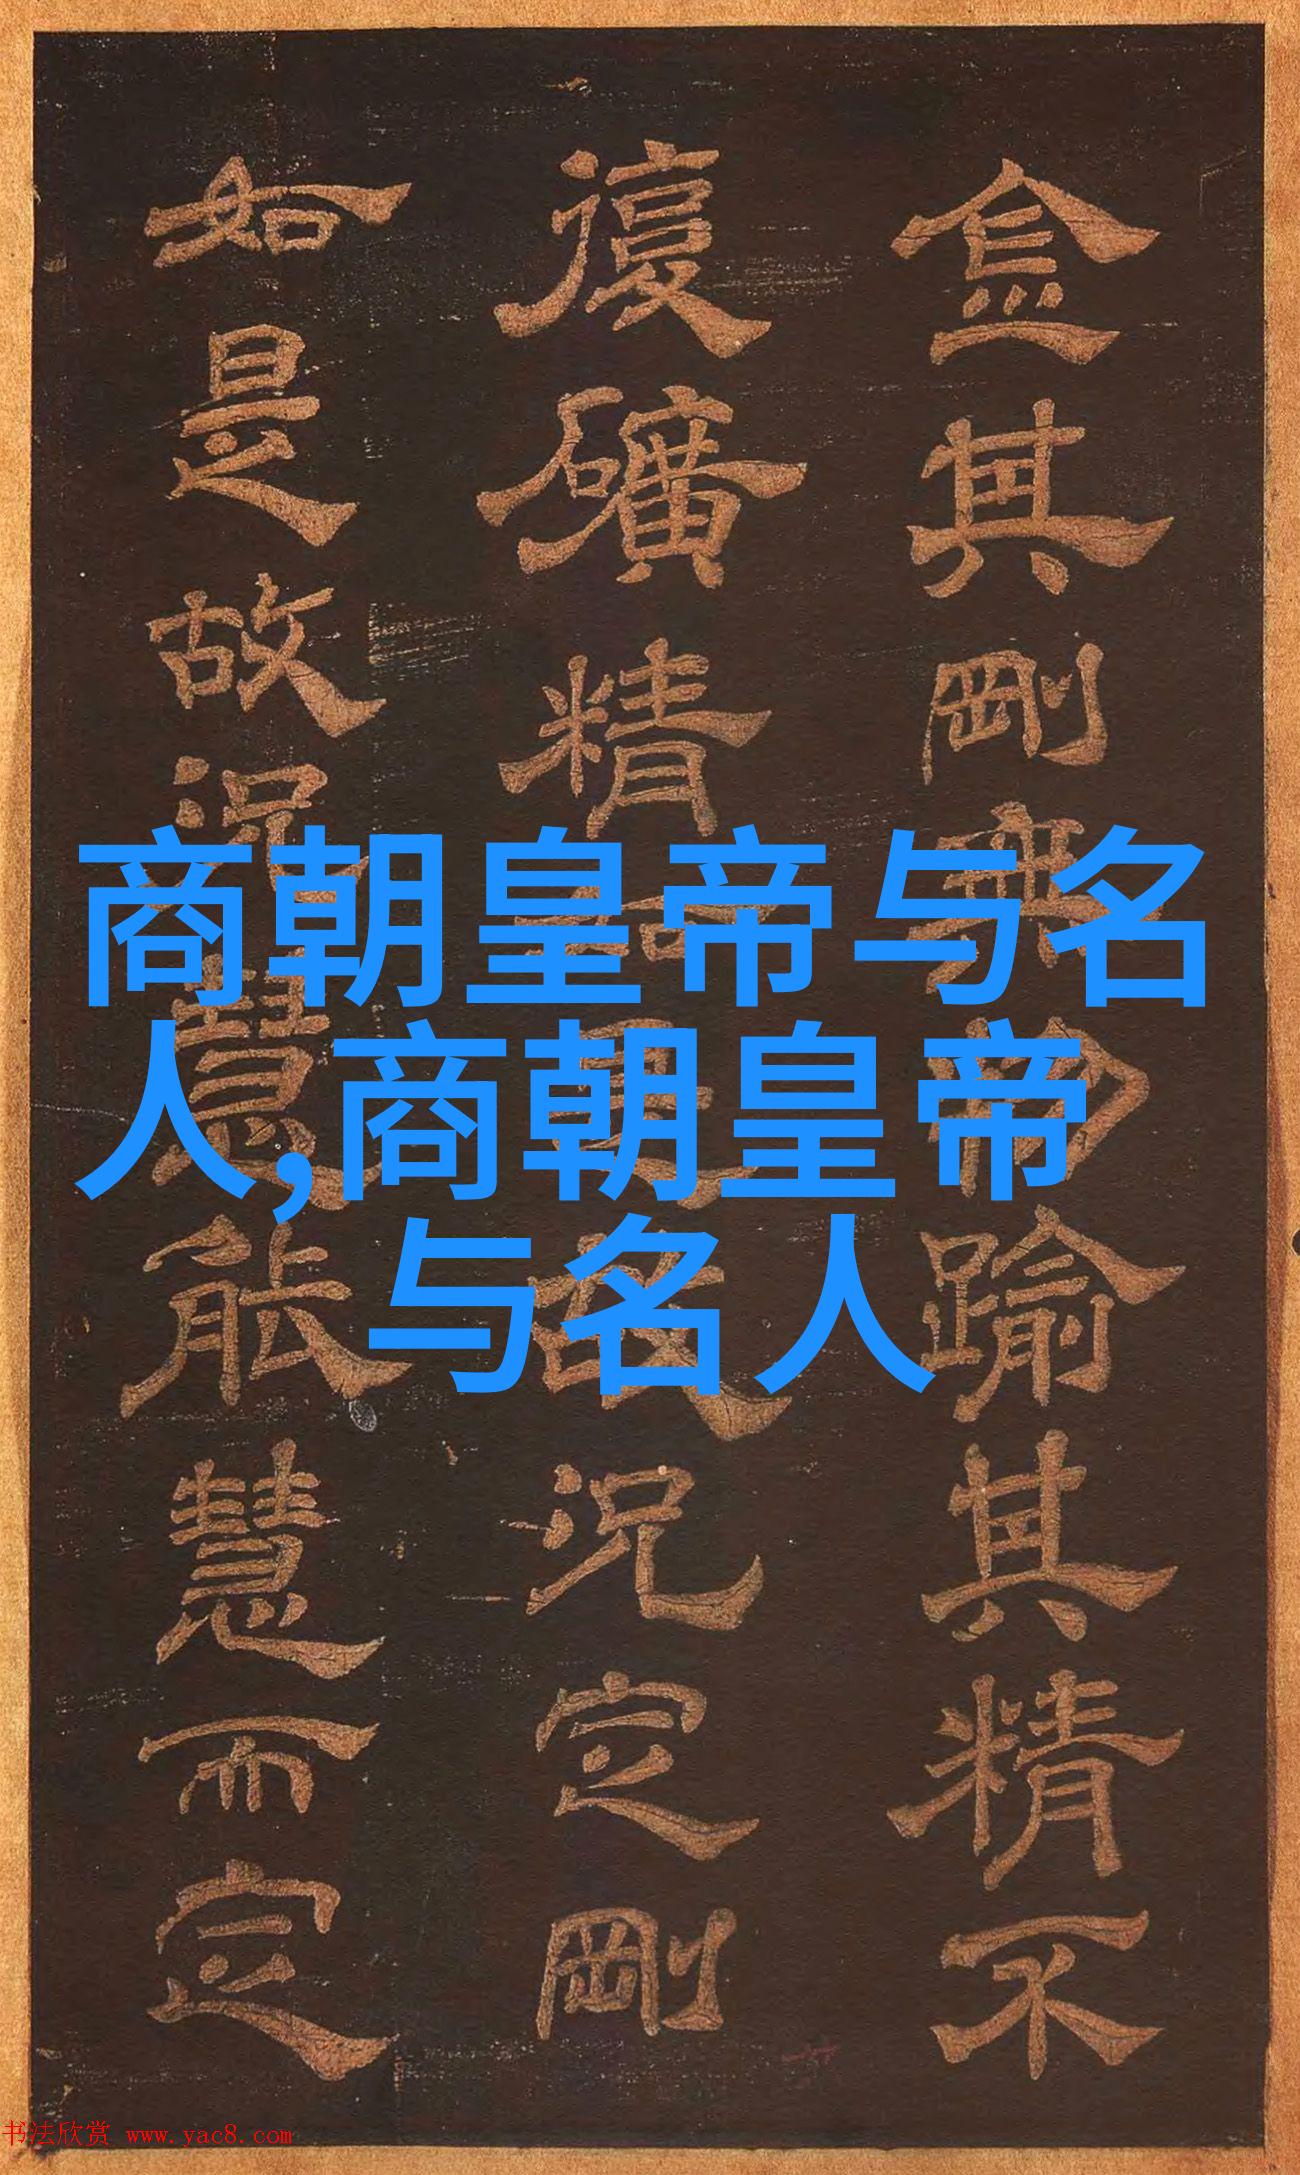 金其剛無物踰其精不
復礦精如是故況定剛
如是故況慧能慧而定
商朝皇帝与名
人,商朝皇帝
与名人
书法欣赏 www.yac8.com